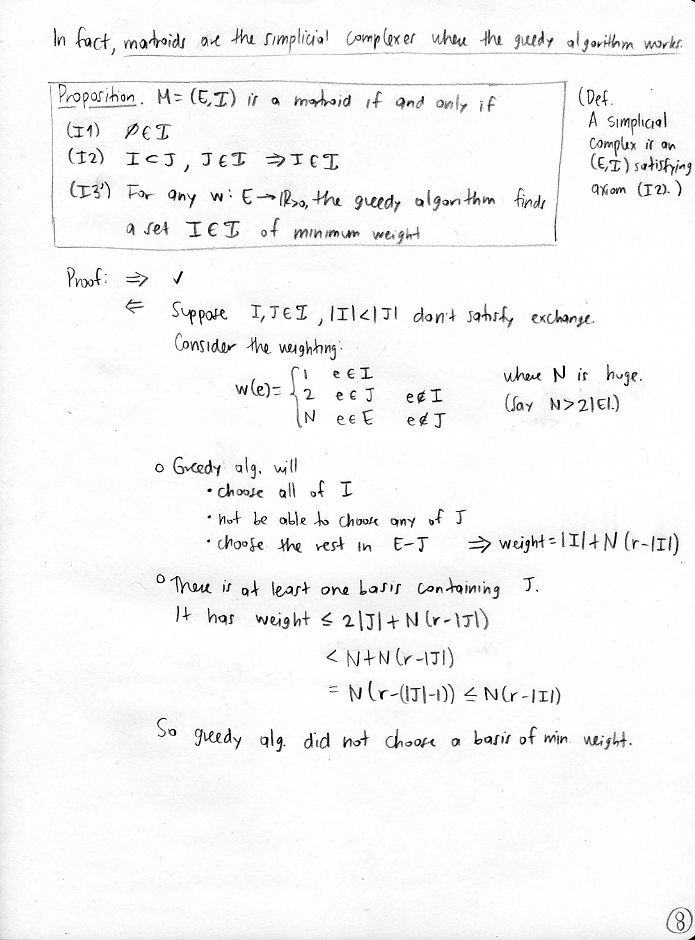 In fact, matroids are the simplicial complexes where the greedy algorithm works.
Proposition. M = (E, I) is a matroid if and only if
(I1) ∅ ∈ I
(I2) I ⊂ J, J ∈ I ⇒ I ∈ I
(I3') For any w: E → ℝ>0, the greedy algorithm finds
a set I ∈ I of minimum weight
(Def.
A simplicial
complex is an
(E, I) satisfying
axiom (I2).)
Proof: ⇒ ✓
⇐ Suppose I, J ∈ I, |I| < |J| don't satisfy exchange.
Consider the weighting:
w(e) = { 1 e ∈ I
2 e ∈ J e ∉ I
N e ∈ E e ∉ J
where N is huge.
(Say N > 2|E|.)
o Greedy alg. will
• choose all of I
• not be able to choose any of J
• choose the rest in E-J ⇒ weight = |I| + N(r-|I|)
o There is at least one basis containing J.
It has weight ≤ 2|J| + N(r-|J|)
< N + N(r-|J|)
= N(r-(|J|-1)) ≤ N(r-|I|)
So greedy alg. did not choose a basis of min. weight.
8